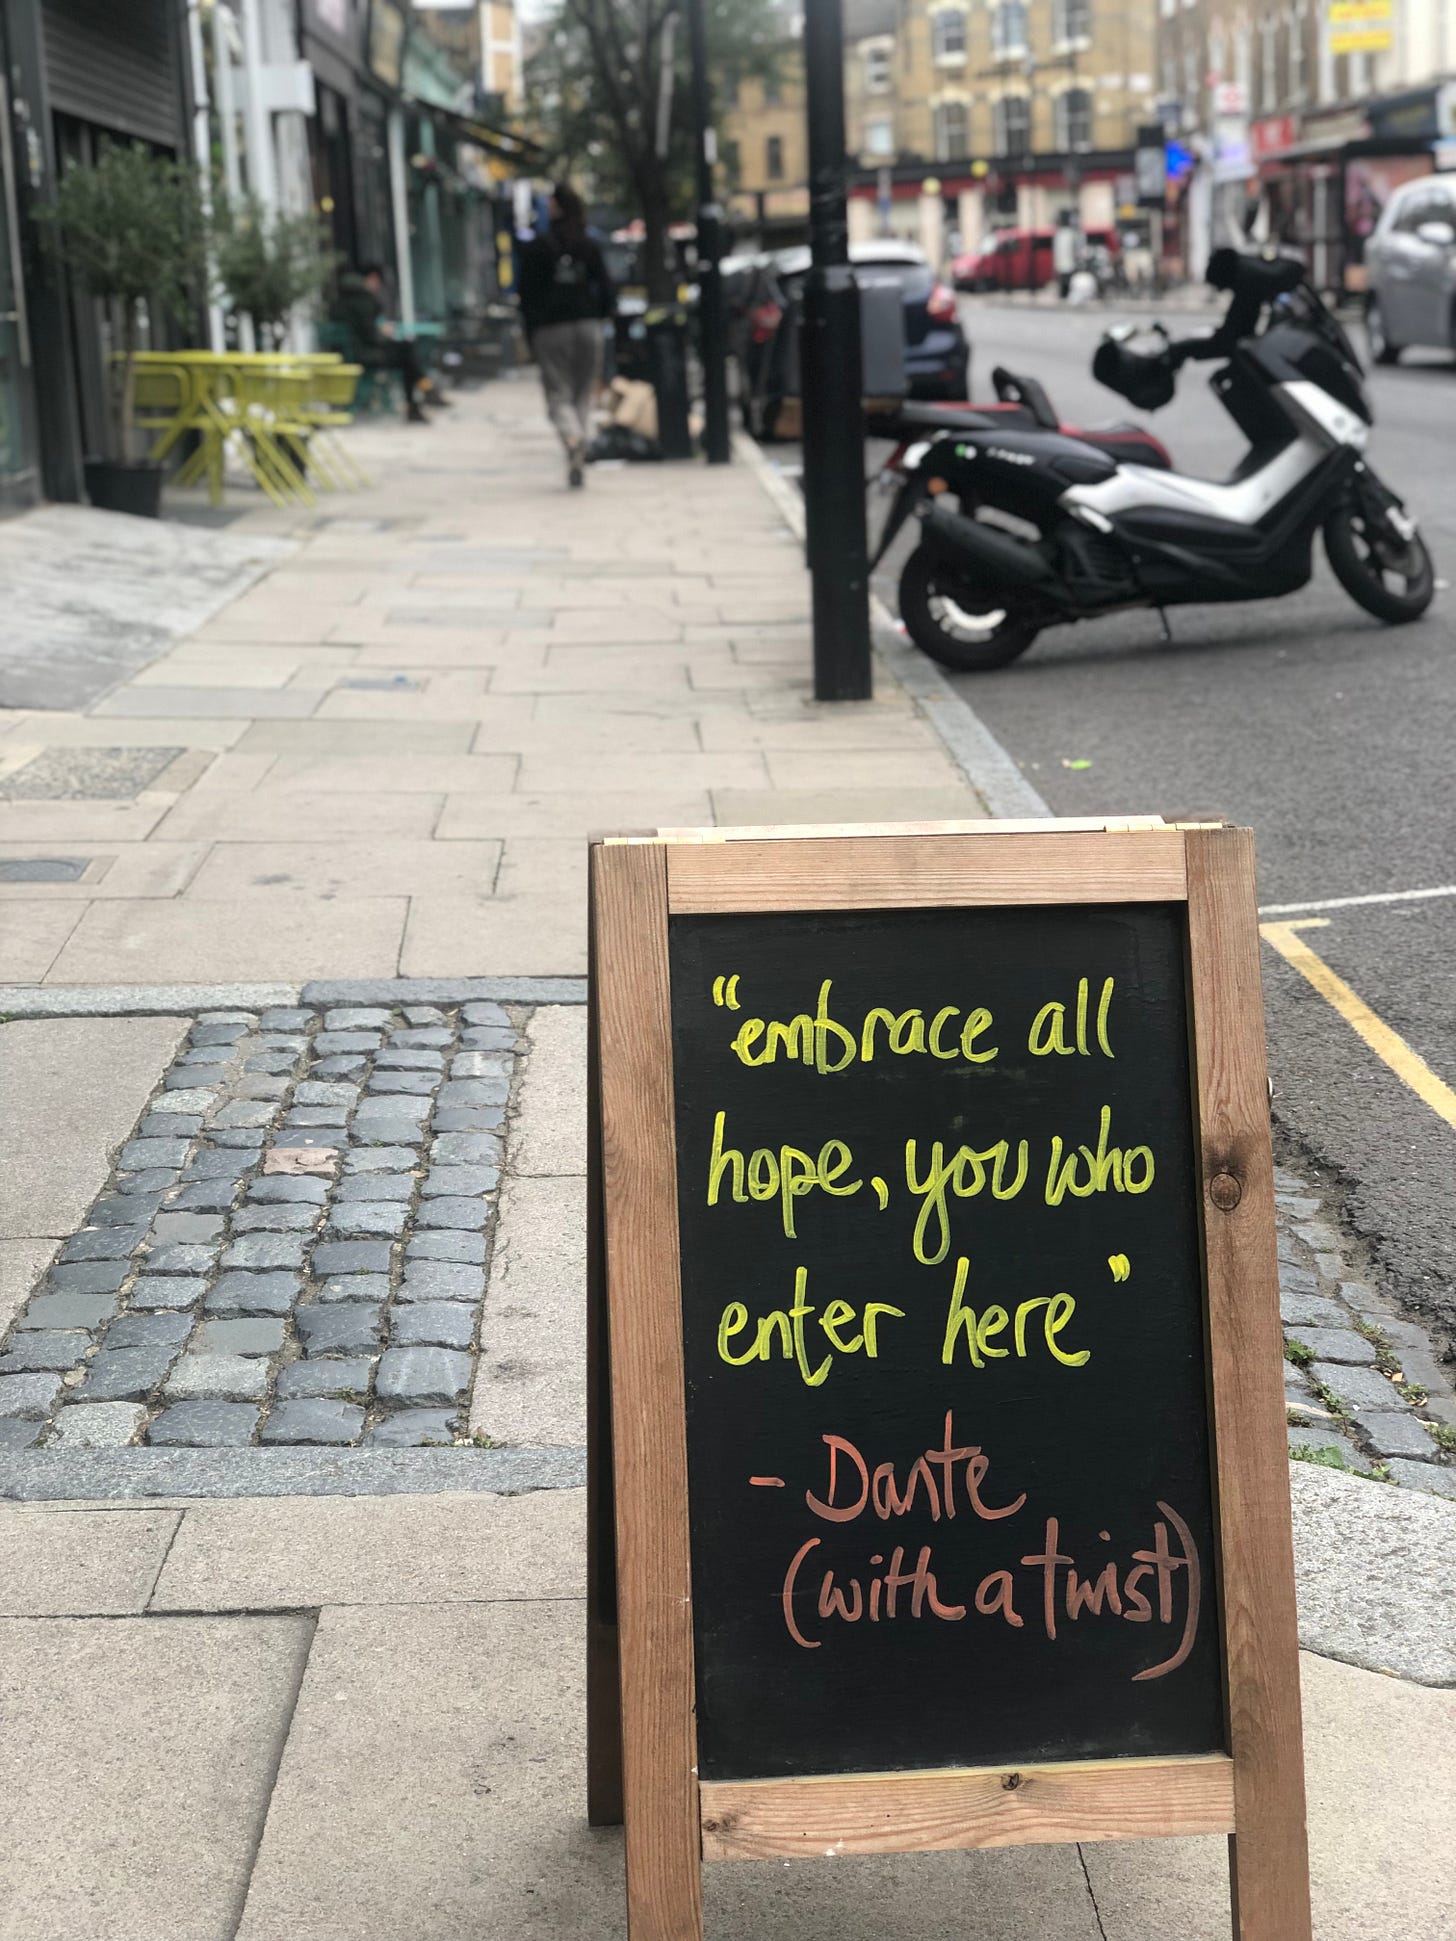 “embrace all
hope, you who
enter here”
- Dante
(with a twist)